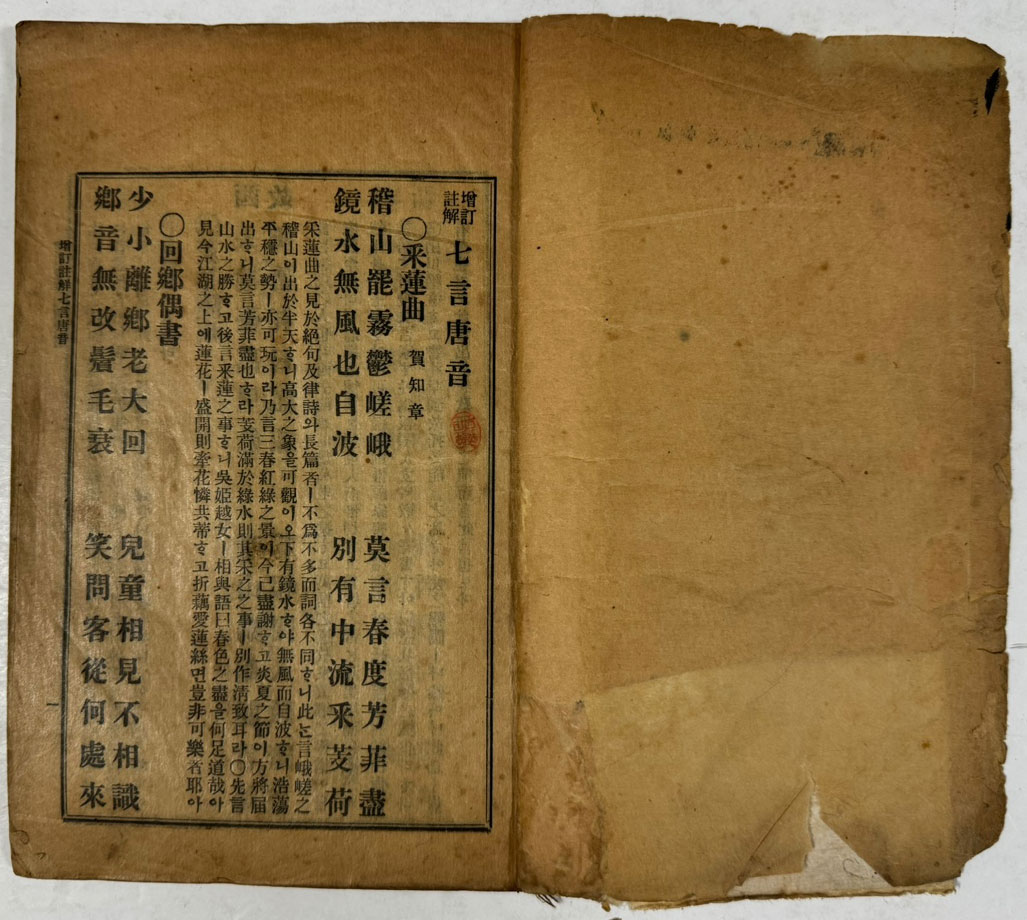 增訂註解 七言唐音
○釆蓮曲 賀知章
稽山罷霧鬱嵯峨 莫言春度芳菲盡
鏡水無風也自波 別有中流釆芰荷
采蓮曲之見於絕句及律詩와長篇者ㅣ不爲不多而詞各不同ᄒᆞ니此ᄂᆞᆫ言峨嵯之
稽山이出於半天ᄒᆞ니高大之象을可觀이오下有鏡水ᄒᆞ야無風而自波ᄒᆞ니浩蕩
平穩之勢ㅣ亦可玩이라乃言三春紅綠之景이今已盡謝ᄒᆞ고炎夏之節이方將屆
出ᄒᆞ니莫言芳菲盡也ᄒᆞ라芰荷滿於綠水則其采之之事ㅣ別作淸致耳라○先言
山水之勝ᄒᆞ고後言釆蓮之事ᄒᆞ니吳姬越女ㅣ相與語曰春色之盡을何足道哉아
見今江湖之上에蓮花ㅣ盛開則牽花憐共蒂ᄒᆞ고折藕愛蓮絲면豈非可樂者耶아
○回鄉偶書
少小離鄉老大回 兒童相見不相識
鄉音無改鬢毛衰 笑問客從何處來
增訂註解七言唐音
一